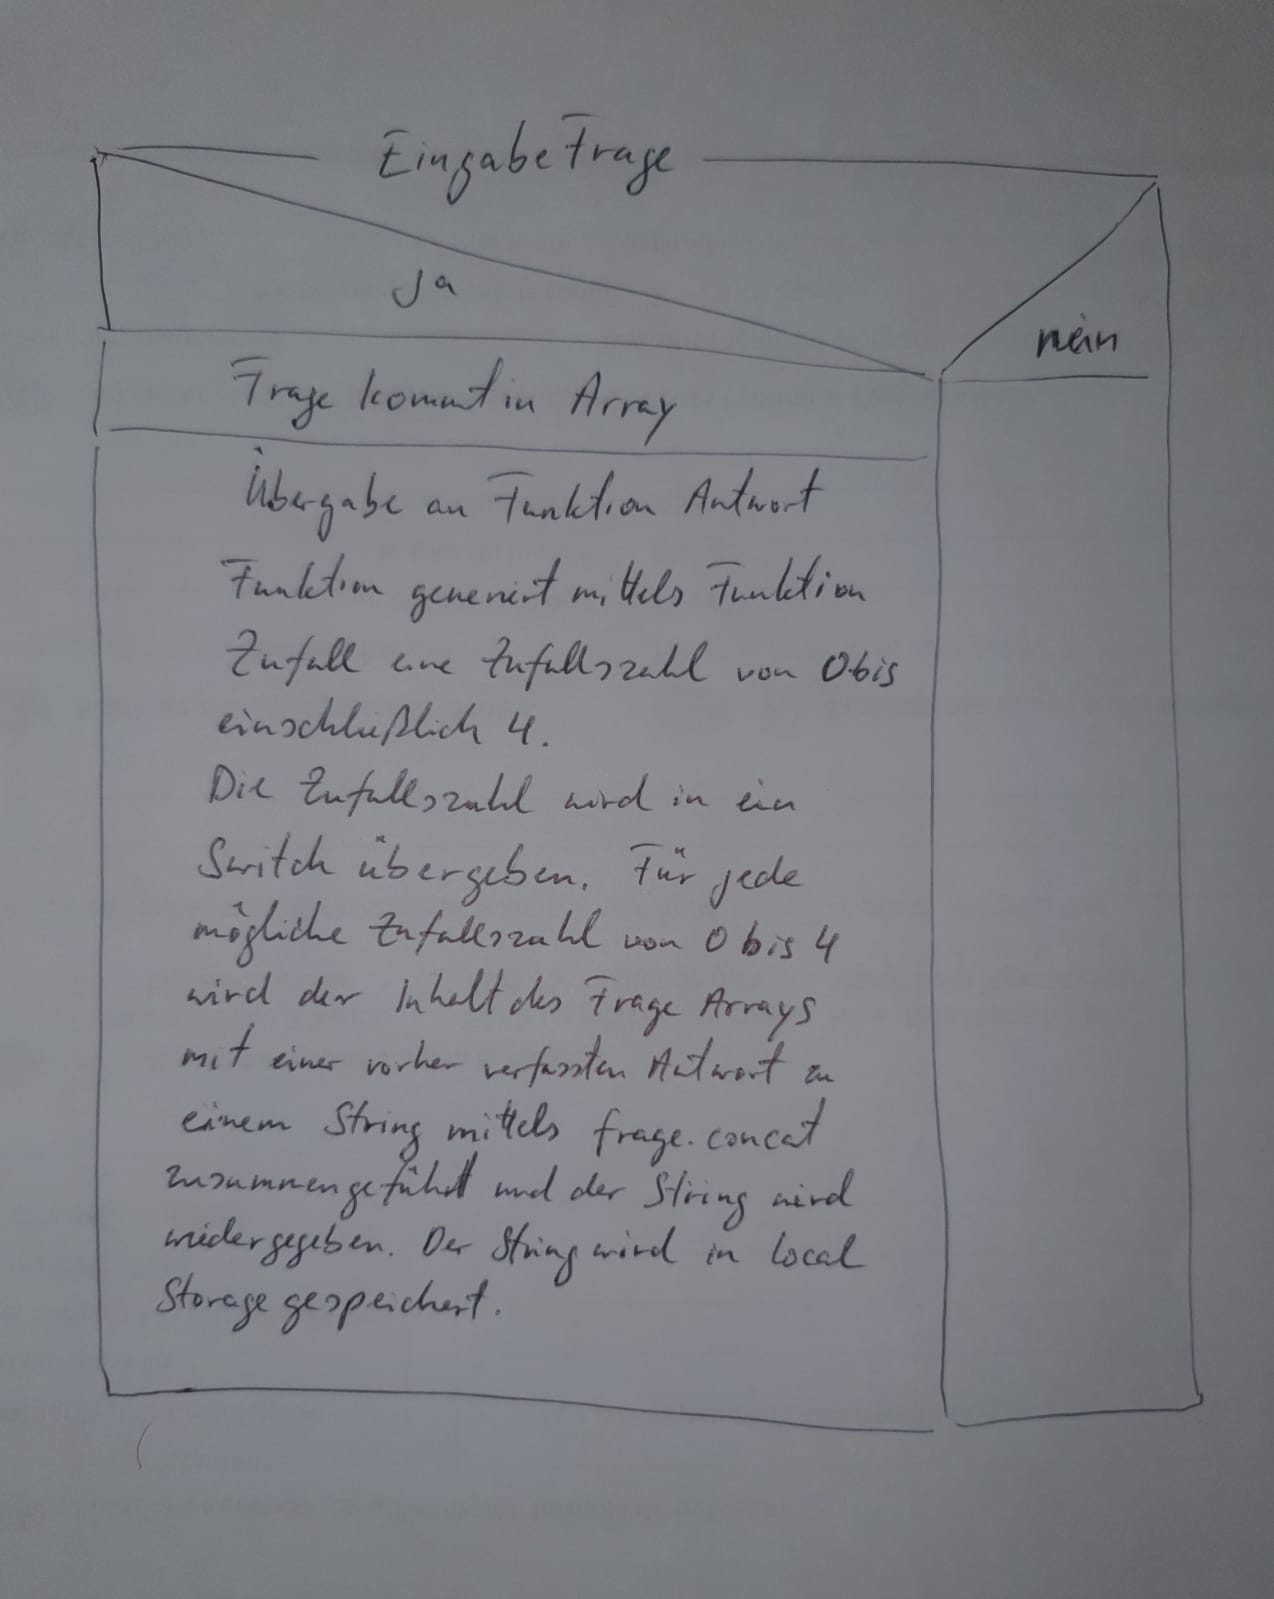 Eingabe Frage
Ja
nein
Frage kommt in Array
Übergabe an Funktion Antwort
Funktion generiert mittels Funktion
Zufall eine Zufallszahl von 0 bis
einschließlich 4.
Die Zufallszahl wird in ein
Switch übergeben. Für jede
mögliche Zufallszahl von 0 bis 4
wird der Inhalt des Frage Arrays
mit einer vorher verfassten Antwort zu
einem String mittels frage.concat
zusammengeführt und der String wird
wiedergegeben. Der String wird in local
Storage gespeichert.